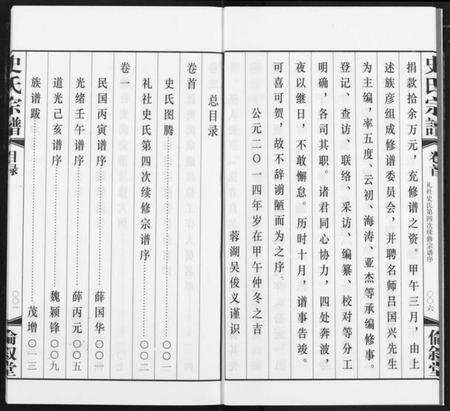 史氏宗譜
卷首
礼社史氏第四次续修宗谱序
〇〇六
倫敘堂
捐款拾余万元，充修谱之资。甲午三月，由上
述族彦组成修谱委员会，并聘名师吕国兴先生
为主编，率五度、云初、海涛、亚杰等承编修事。
登记、查访、联络、采访、编纂、校对等分工
明确，各司其职。诸君同心协力，四处奔波，
夜以继日，不敢懈怠。历时十月，谱事告竣。
可喜可贺，故不辞谫陋而为之序。
公元二〇一四年岁在甲午仲冬之吉
蓉湖吴俊义谨识
总目录
卷首
史氏图腾……〇〇一
礼社史氏第四次续修宗谱序……〇〇二
卷一
民国丙寅谱序……薛国华……〇〇一
光绪壬午谱序……薛丙元……〇〇五
道光己亥谱序……魏颖锋……〇〇九
族谱跋……茂增……〇一三
史氏宗譜
目录
倫敘堂